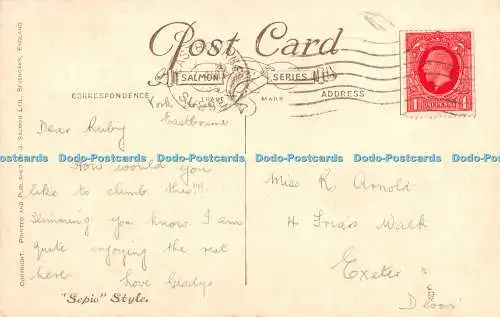 Post Card
SALMON SERIES
TRADE MARK
CORRESPONDENCE
ADDRESS
COPYRIGHT. PRINTED AND PUBLISHED J. SALMON LTD., SEVENOAKS, ENGLAND
1 1
York
Eastbourne
Dear Ruby
How would you
like to climb this!!!
Slimming you know. I am
quite enjoying the rest
here Love Gladys
Miss R. Arnold
4 Friars Walk
Exeter
Devon
"Sepio" Style.
Dodo-Postcards Dodo-Postcards Dodo-Postcards Dodo-Postcards Dodo-Postcards